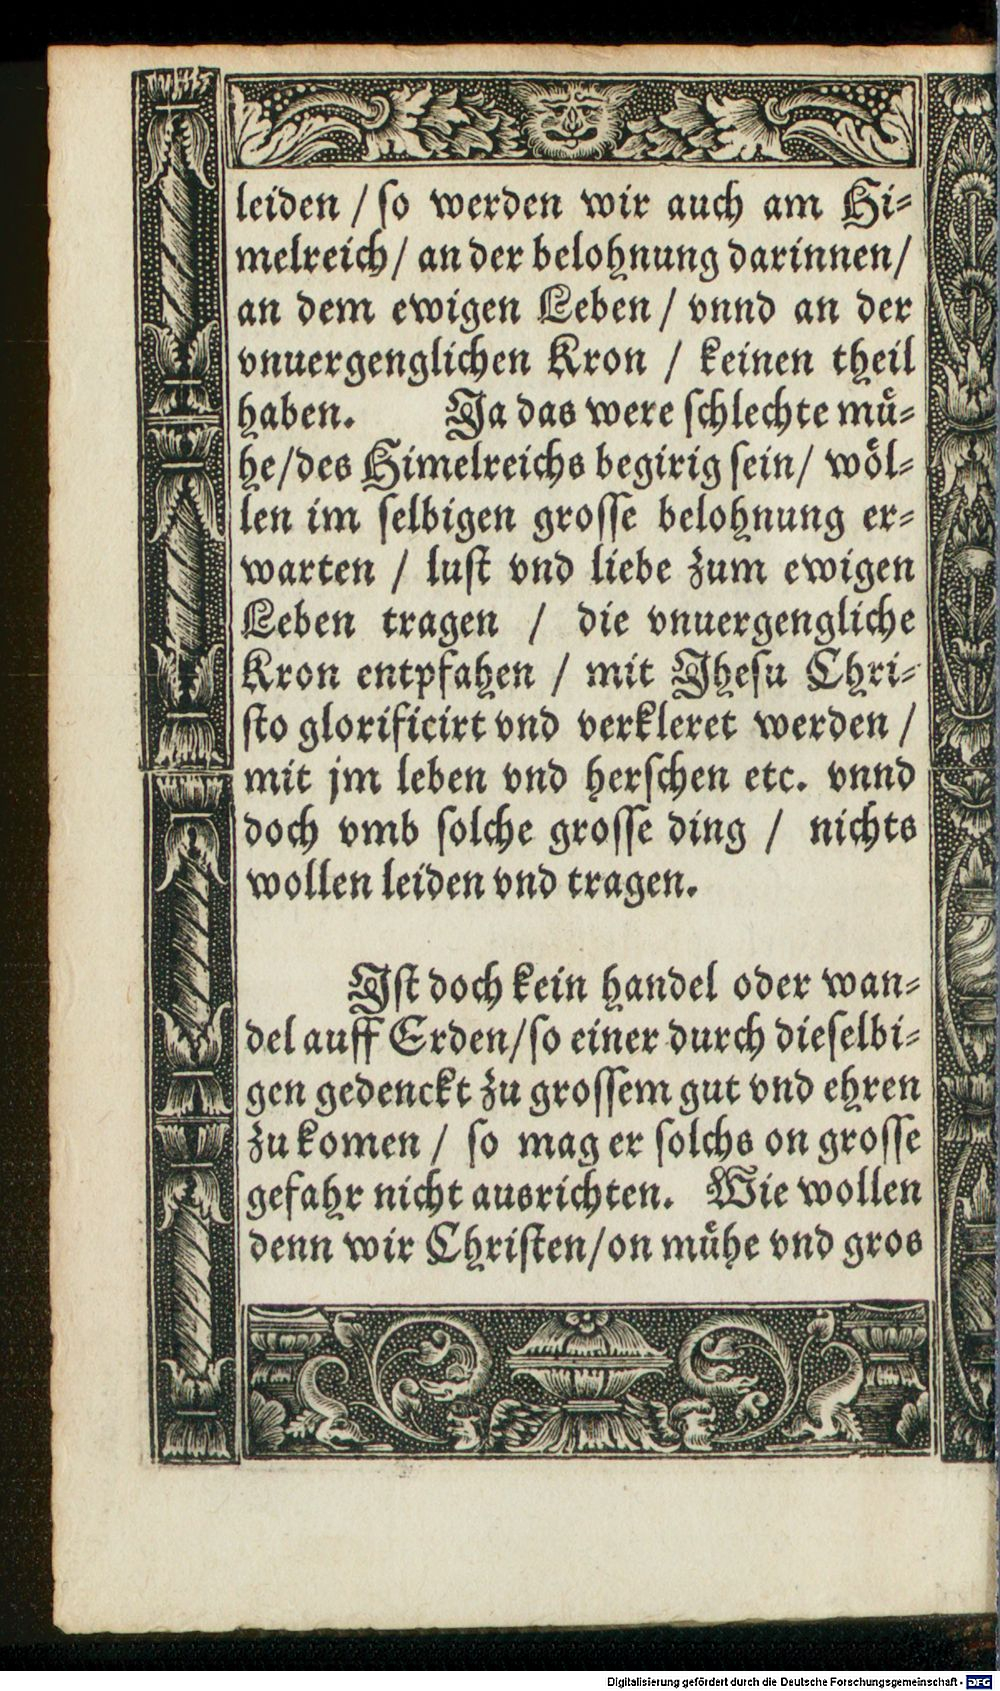 leiden / so werden wir auch am Hi-
melreich / an der belohnung darinnen /
an dem ewigen Leben / vnnd an der
vnuergenglichen Kron / keinen theil
haben. Ja das were schlechte muͤ-
he / des Himelreichs begirig sein / woͤl-
len im selbigen grosse belohnung er-
warten / lust vnd liebe zum ewigen
Leben tragen / die vnuergengliche
Kron entpfahen / mit Jhesu Chri-
sto glorificirt vnd verkleret werden /
mit jm leben vnd herschen etc. vnnd
doch vmb solche grosse ding / nichts
wollen leiden vnd tragen.
Jst doch kein handel oder wan-
del auff Erden / so einer durch dieselbi-
gen gedenckt zu grossem gut vnd ehren
zu komen / so mag er solchs on grosse
gefahr nicht ausrichten. Wie wollen
denn wir Christen / on muͤhe vnd gros
Digitalisierung gefördert durch die Deutsche Forschungsgemeinschaft - DFG